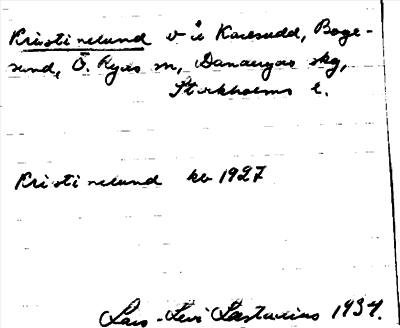 Kristinelund v å Karsudd, Boge-
sund, Ö. Ryds sn, Danderyds skg,
Stockholms l.
Kristinelund kb 1927
Lars-Levi Læstadius 1934.